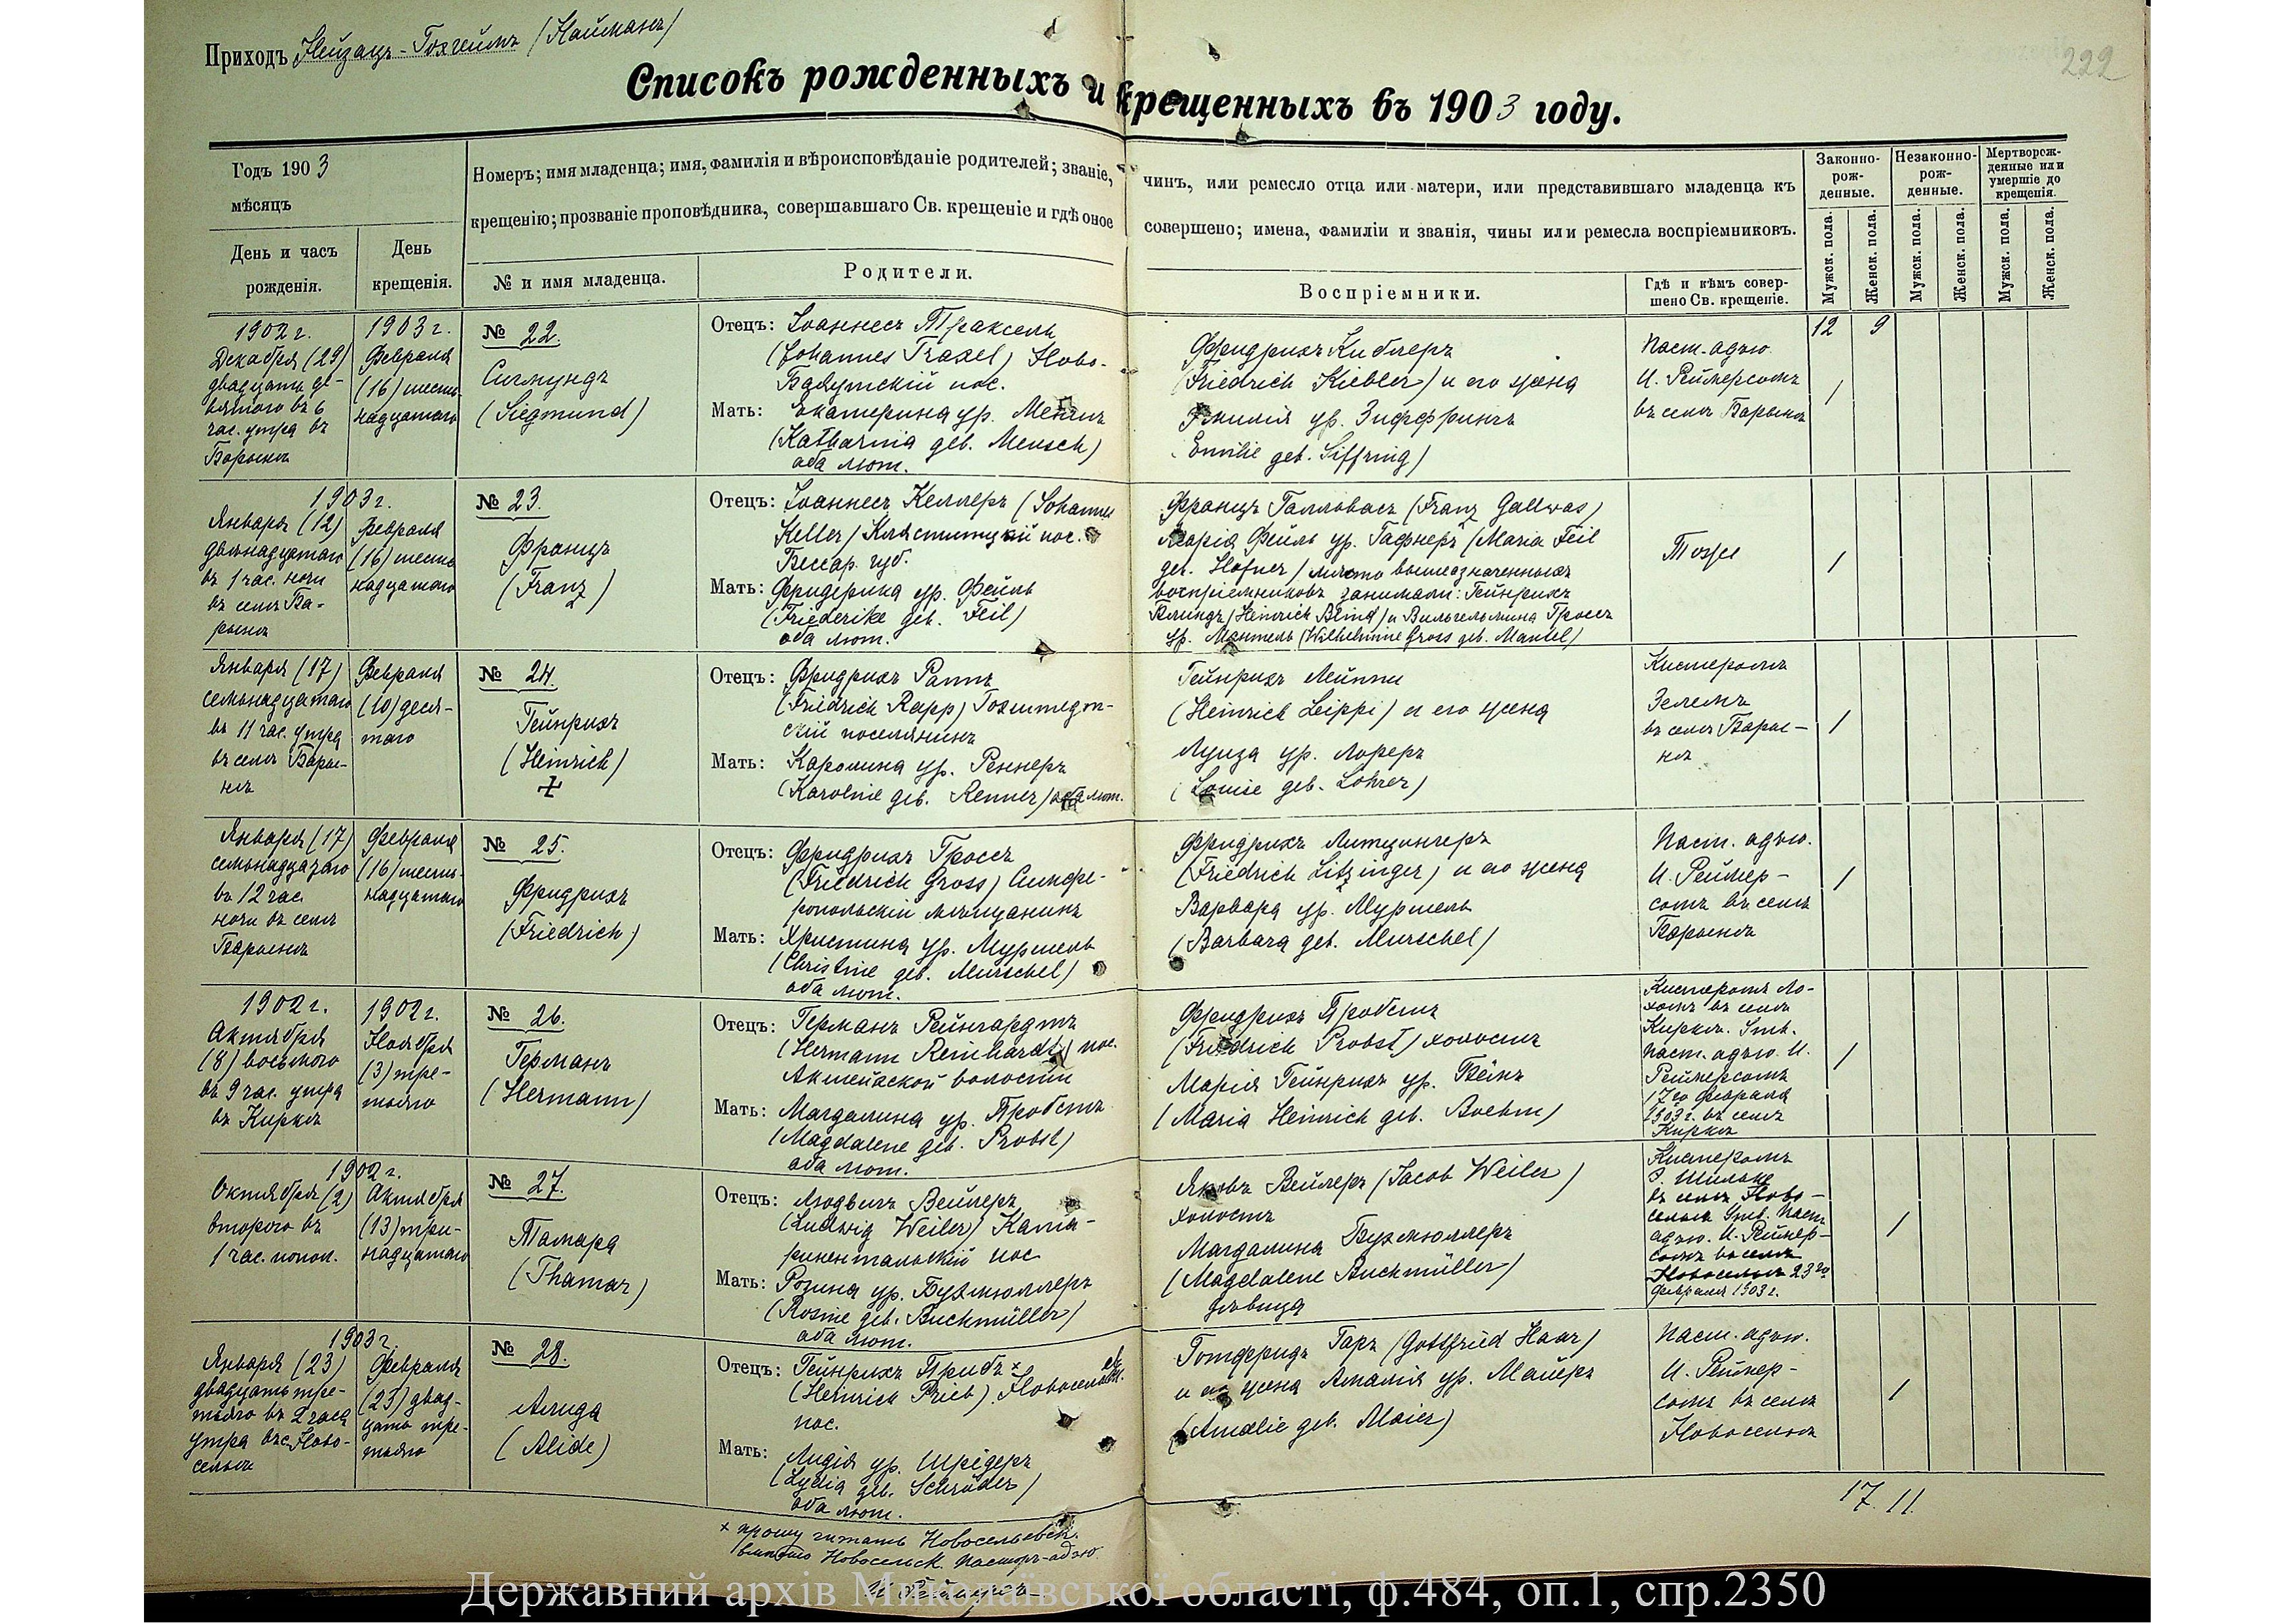 Приходъ Нейзацъ-Гохгеймъ (Найманъ)
222
Списокъ рожденныхъ и крещенныхъ въ 1903 году.
Годъ 1903
мѣсяцъ
День и часъ
рожденія.
День
крещенія.
Номеръ; имя младенца; имя, фамилія и вѣроисповѣданіе родителей; званіе,
крещенію; прозваніе проповѣдника, совершавшаго Св. крещеніе и гдѣ оное
№ и имя младенца.
Родители.
чинъ, или ремесло отца или матери, или представившаго младенца къ
совершено; имена, фамиліи и званія, чины или ремесла воспріемниковъ.
Воспріемники.
Гдѣ и кѣмъ совер-
шено Св. крещеніе.
Законно-
рож-
денные.
Незаконно-
рож-
денные.
Мертворож-
денные или
умершіе до
крещенія.
Мужск. пола.
Женск. пола.
Мужск. пола.
Женск. пола.
Мужск. пола.
Женск. пола.
12 9
1902 г.
Декабря (29)
двадцать де-
вятого въ 6
час. утра въ
Барынѣ
1903 г.
Февраля
(16) шест-
надцатаго
№ 22.
Сигмундъ
(Siegmund)
Отецъ: Іоаннесъ Траксель
(Johannes Traxel) Ново-
скій пос.
Мать: Екатерина ур. Меншъ
(Katharina geb. Mensch)
оба лют.
Фридрихъ Киблеръ
(Friedrich Kiebler) и его жена
Эмилія ур. Зиффрингъ
Emilie geb. Siffring)
Паст.-адъю.
И. Реймерсомъ
въ селѣ Барынѣ
1
1903 г.
Января (12)
двѣнадцатаго
въ 1 час. ночи
въ селѣ Ба-
рынѣ
Февраля
(16) шест-
надцатаго
№ 23.
Францъ
(Franz)
Отецъ: Іоаннесъ Келлеръ (Johannes
Keller) Клястицкій пос.
Бессар. губ.
Мать: Фридерика ур. Фейль
(Friederike geb. Feil)
оба лют.
Францъ Галлвасъ (Franz Gallwas)
Марія Фейль ур. Гафнеръ (Maria Feil
geb. Hafner) мѣсто вышеозначенныхъ
воспріемниковъ занимали: Гейнрихъ
Блиндъ (Heinrich Blind) и Вильгельмина Гроссъ
ур. Мантель (Wilhelmine Gross geb. Mantel)
Тоже
1
Января (17)
семьнадцатаго
въ 11 час. утра
въ селѣ Бары-
нѣ
Февраля
(10) деся-
таго
№ 24.
Гейнрихъ
(Heinrich)
+
Отецъ: Фридрихъ Раппъ
(Friedrich Rapp) Гохштедт-
скій поселянинъ
Мать: Каролина ур. Реннеръ
(Karoline geb. Renner) оба лют.
Гейнрихъ Лейппи
(Heinrich Leippi) и его жена
Луиза ур. Лореръ
(Louise geb. Lohrer)
Кистеромъ
Зелемъ
въ селѣ Бары-
нѣ
1
Января (17)
семьнадцатаго
въ 12 час.
ночи въ селѣ
Барынѣ
Февраля
(16) шест-
надцатаго
№ 25.
Фридрихъ
(Friedrich)
Отецъ: Фридрихъ Гроссъ
(Friedrich Gross) Симфе-
ропольскій мѣщанинъ
Мать: Христина ур. Муршель
(Christine geb. Murschel)
оба лют.
Фридрихъ Литцингеръ
(Friedrich Litzinger) и его жена
Варвара ур. Муршель
(Barbara geb. Murschel)
Паст. адъю.
И. Реймер-
сомъ въ селѣ
Барынѣ
1
1902 г.
Октября
(8) восьмого
въ 9 час. утра
въ Киркѣ
1902 г.
Ноября
(3) тре-
тьяго
№ 26.
Германъ
(Hermann)
Отецъ: Германъ Рейнгардтъ
(Hermann Reinhardt) пос.
Акшейхской волости
Мать: Магдалина ур. Пробстъ
(Magdalene geb. Probst)
оба лют.
Фридрихъ Пробстъ
(Friedrich Probst) холостъ
Марія Гейнрихъ ур. Бёмъ
(Maria Heinrich geb. Boehm)
Кистеромъ Ло-
хомъ въ селѣ
Киркѣ. Утв.
паст. адъю. И.
Реймерсомъ
17го Февраля
1903 г. въ селѣ
Киркѣ
1
1902 г.
Октября (2)
второго въ
1 час. попол.
Октября
(13) три-
надцатаго
№ 27.
Тамара
(Thamar)
Отецъ: Людвигъ Вейлеръ
(Ludwig Weiler) Ката-
риентальскій пос
Мать: Розина ур. Бухмюллеръ
(Rosine geb. Buchmüller)
оба лют.
Яковъ Вейлеръ (Jacob Weiler)
холостъ
Магдалина Бухмюллеръ
(Magdalene Buchmüller)
дѣвица
Кистеромъ
въ селѣ Ново-
сельѣ Утв. Паст.
адъю. И. Реймер-
сомъ въ селѣ
Новосельѣ 23го
Февраля 1903 г.
1
1903 г.
Января (23)
двадцать тре-
тьяго въ 2 часа
утра въ с. Ново-
сельѣ
Февраля
(23) двад-
цать тре-
тьяго
№ 28.
Алида
(Alide)
Отецъ: Гейнрихъ Прибъ x
(Heinrich Prieb) Новосельевск.
пос.
Мать: Лидія ур. Шрёдеръ
(Lydia geb. Schröder)
оба лют.
Готфридъ Гаръ (Gottfried Haar)
и его жена Амалія ур. Майеръ
(Amalie geb. Maier)
Паст. адъю.
И. Реймер-
сомъ въ селѣ
Новосельѣ
1
17. 11.
x прошу читать Новосельевск.
вмѣсто Новосельск. Пасторъ-адъю.
И. Реймерсъ
Державний архів Миколаївської області, ф.484, оп.1, спр.2350